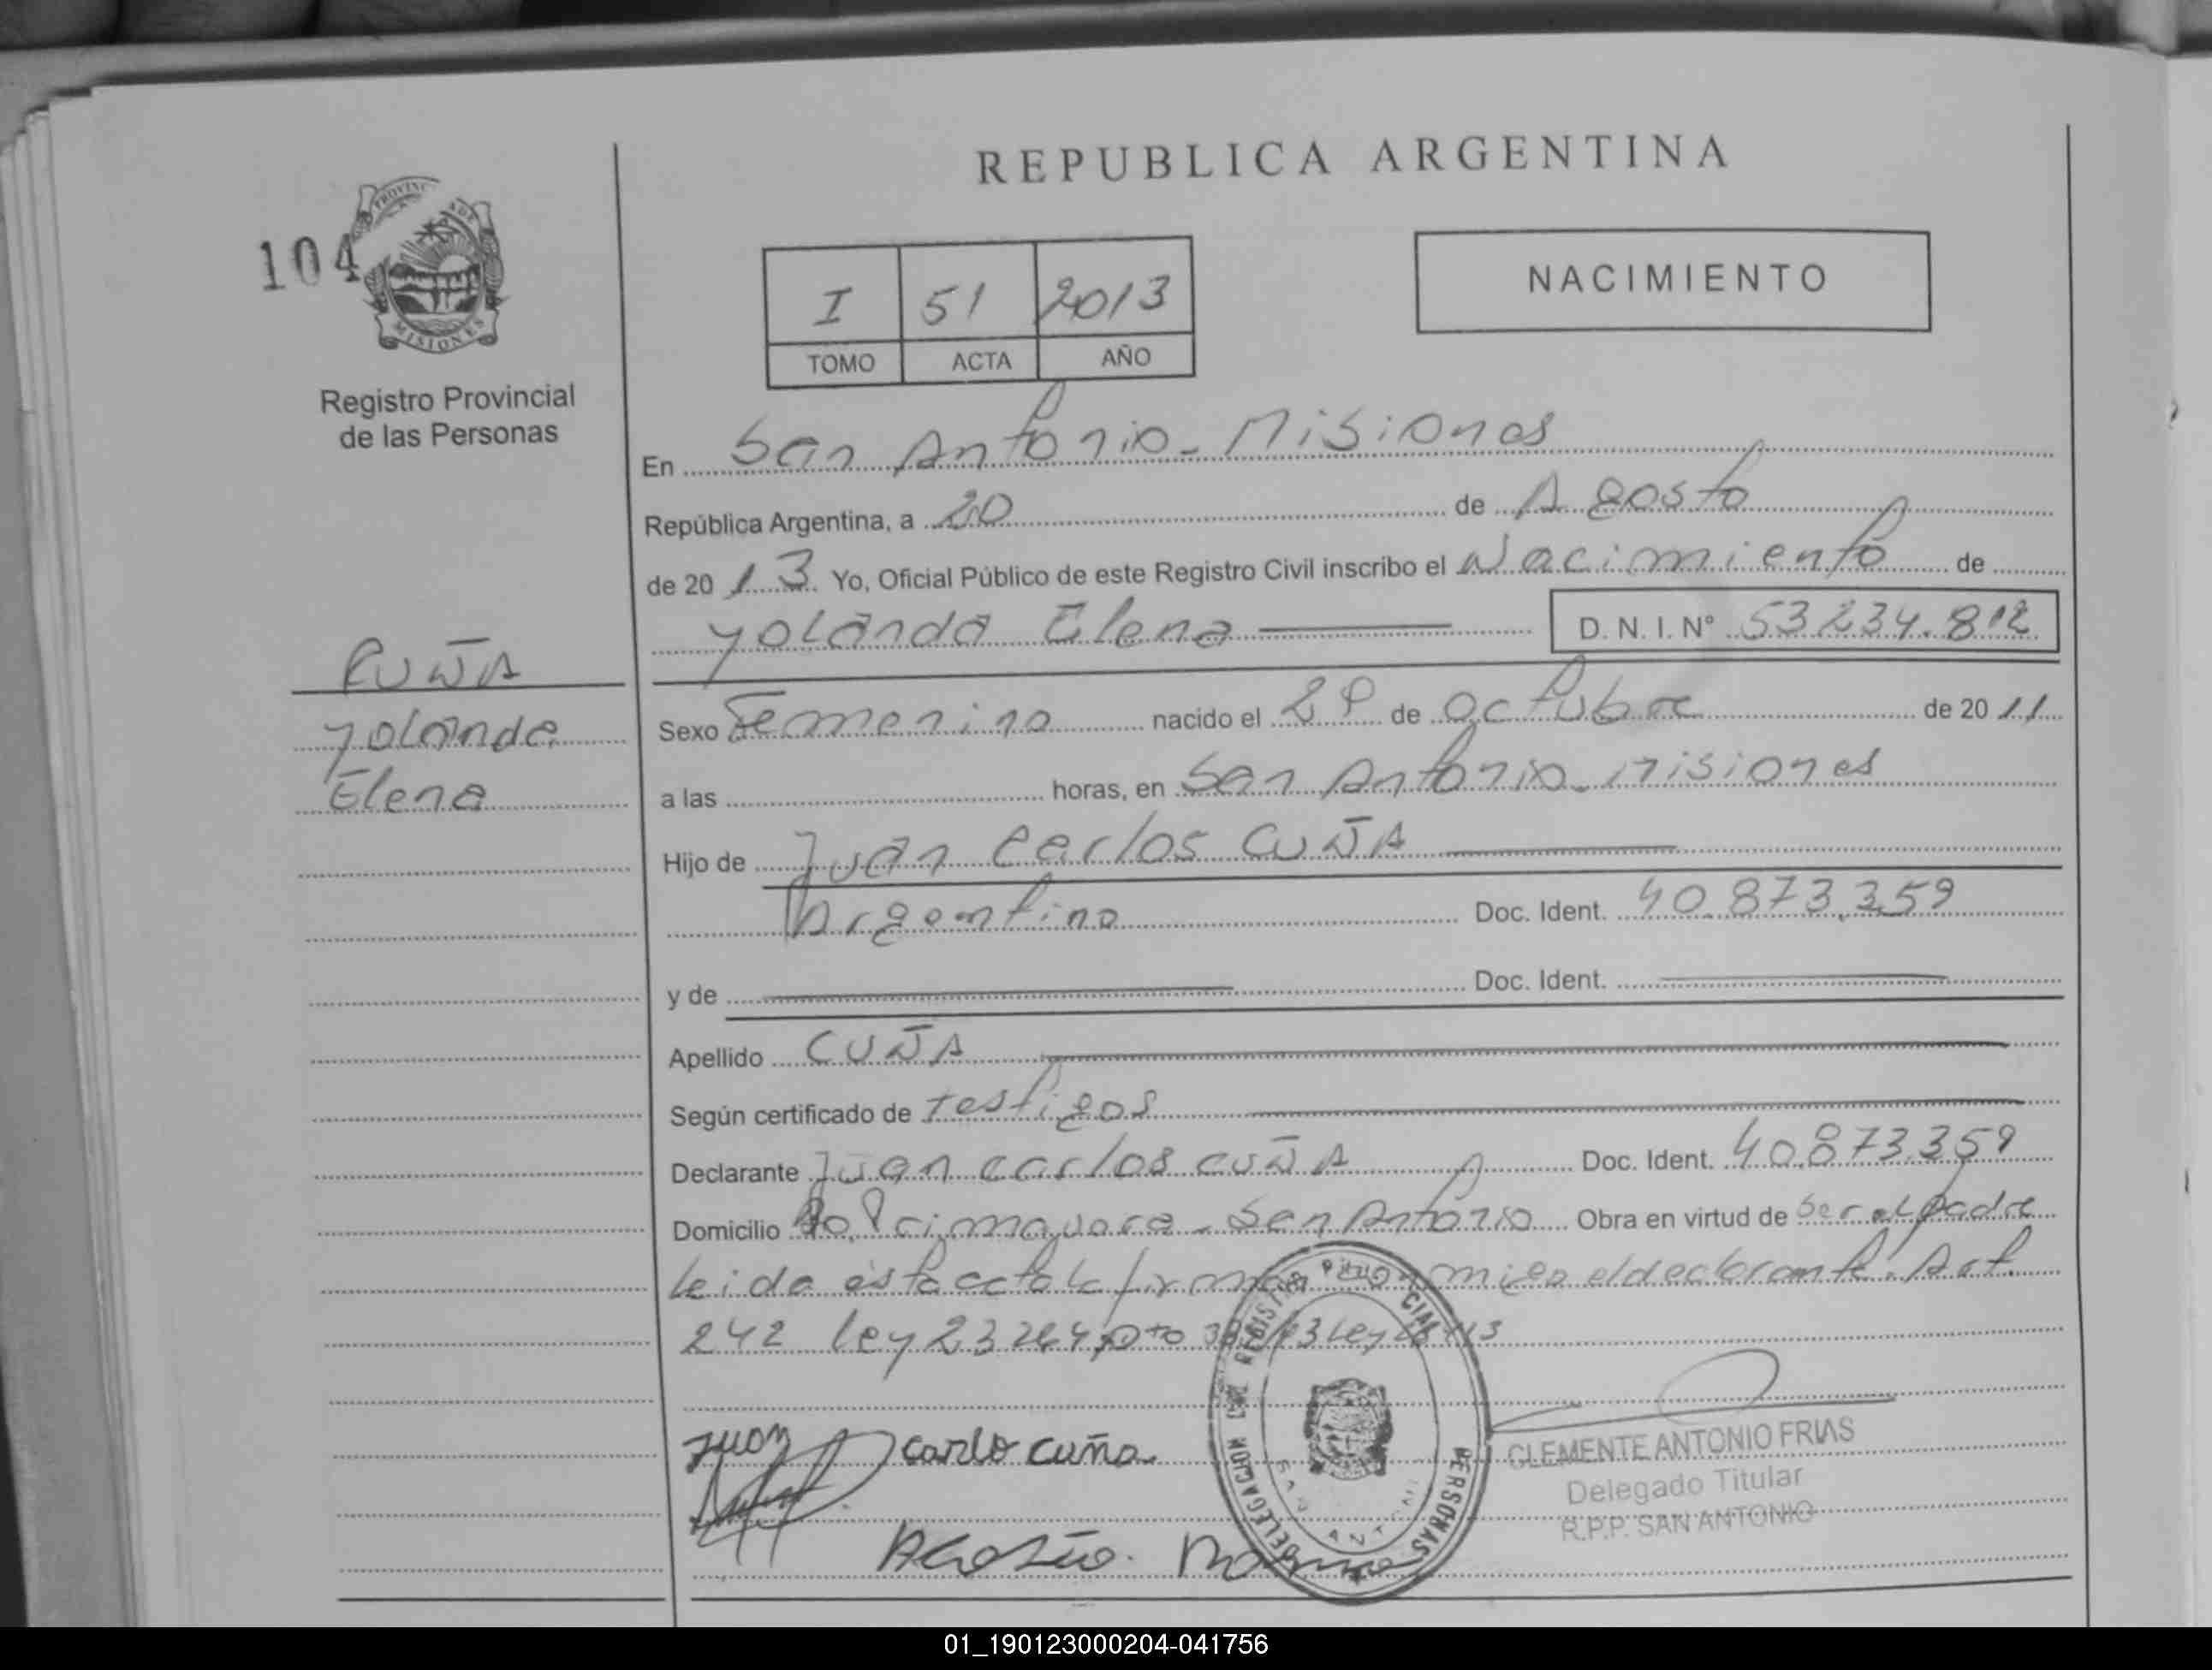 REPUBLICA ARGENTINA
104
PROVINCIA DE
MISIONES
Registro Provincial
de las Personas
I 51 2013
TOMO ACTA AÑO
NACIMIENTO
En San Antonio - Misiones
República Argentina, a 20 de Agosto
de 2013. Yo, Oficial Público de este Registro Civil inscribo el Nacimiento de
Yolanda Elena D. N. I. Nº 53234.812
CUÑA
Yolanda
Elena
Sexo Femenino nacido el de Octubre de 2011
a las horas, en San Antonio - Misiones
Hijo de Juan Carlos CUÑA
Argentino Doc. Ident. 40.873.359
y de Doc. Ident.
Apellido CUÑA
Según certificado de testigos
Declarante Juan Carlos CUÑA Doc. Ident. 40.873.359
Domicilio San Antonio Obra en virtud de ser el padre
Leida esta acta la firma conmigo el declarante. Art.
242 Ley 23264, Dto Ley
Juan Carlo cuña
CLEMENTE ANTONIO FRIAS
Delegado Titular
R.P.P. SAN ANTONIO
DELEGACION DEL REGISTRO PROVINCIAL PERSONAS
SAN ANTONIO
01_190123000204-041756